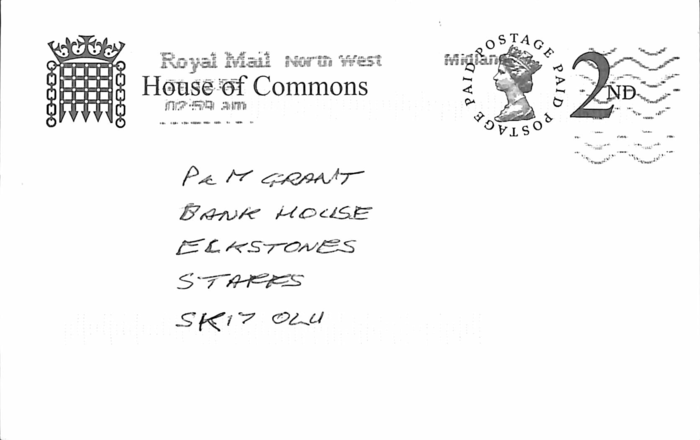 Royal Mail North West Midlands
House of Commons
02:59 am
POSTAGE PAID POSTAGE PAID
2ND
P & M GRANT
BANK HOUSE
ELKSTONES
STAFFS
SK17 OLU